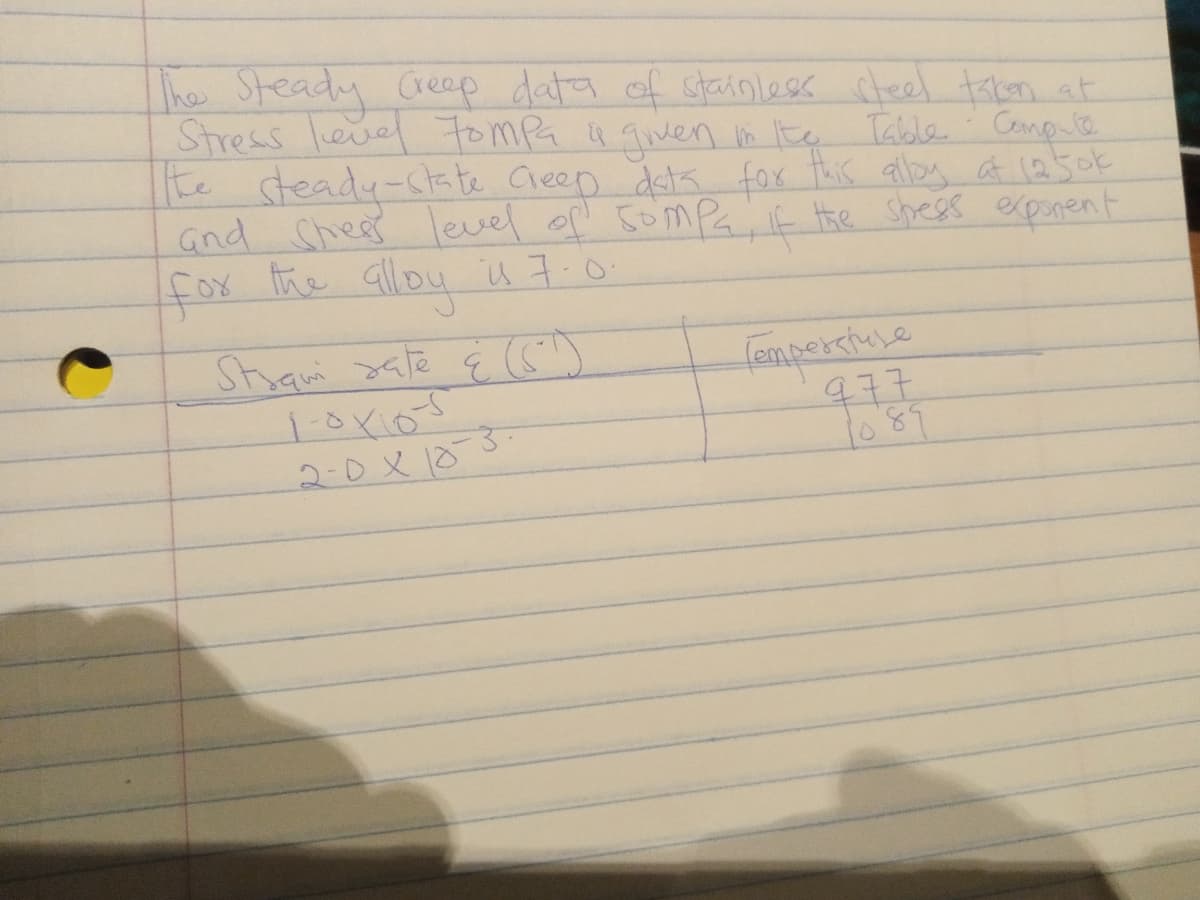 The Steady Creep data of stainless steel taken at
Stress level 70MPa is given in the Table. Compute
the steady-state Creep data for this alloy at 1250K
and Stress level of 50MPa, if the stress exponent
for the alloy is 7.0.
Strain rate ε̇ (S⁻¹) Temperature
1.0X10⁻⁵ 977
2.0 X 10⁻³. 1089